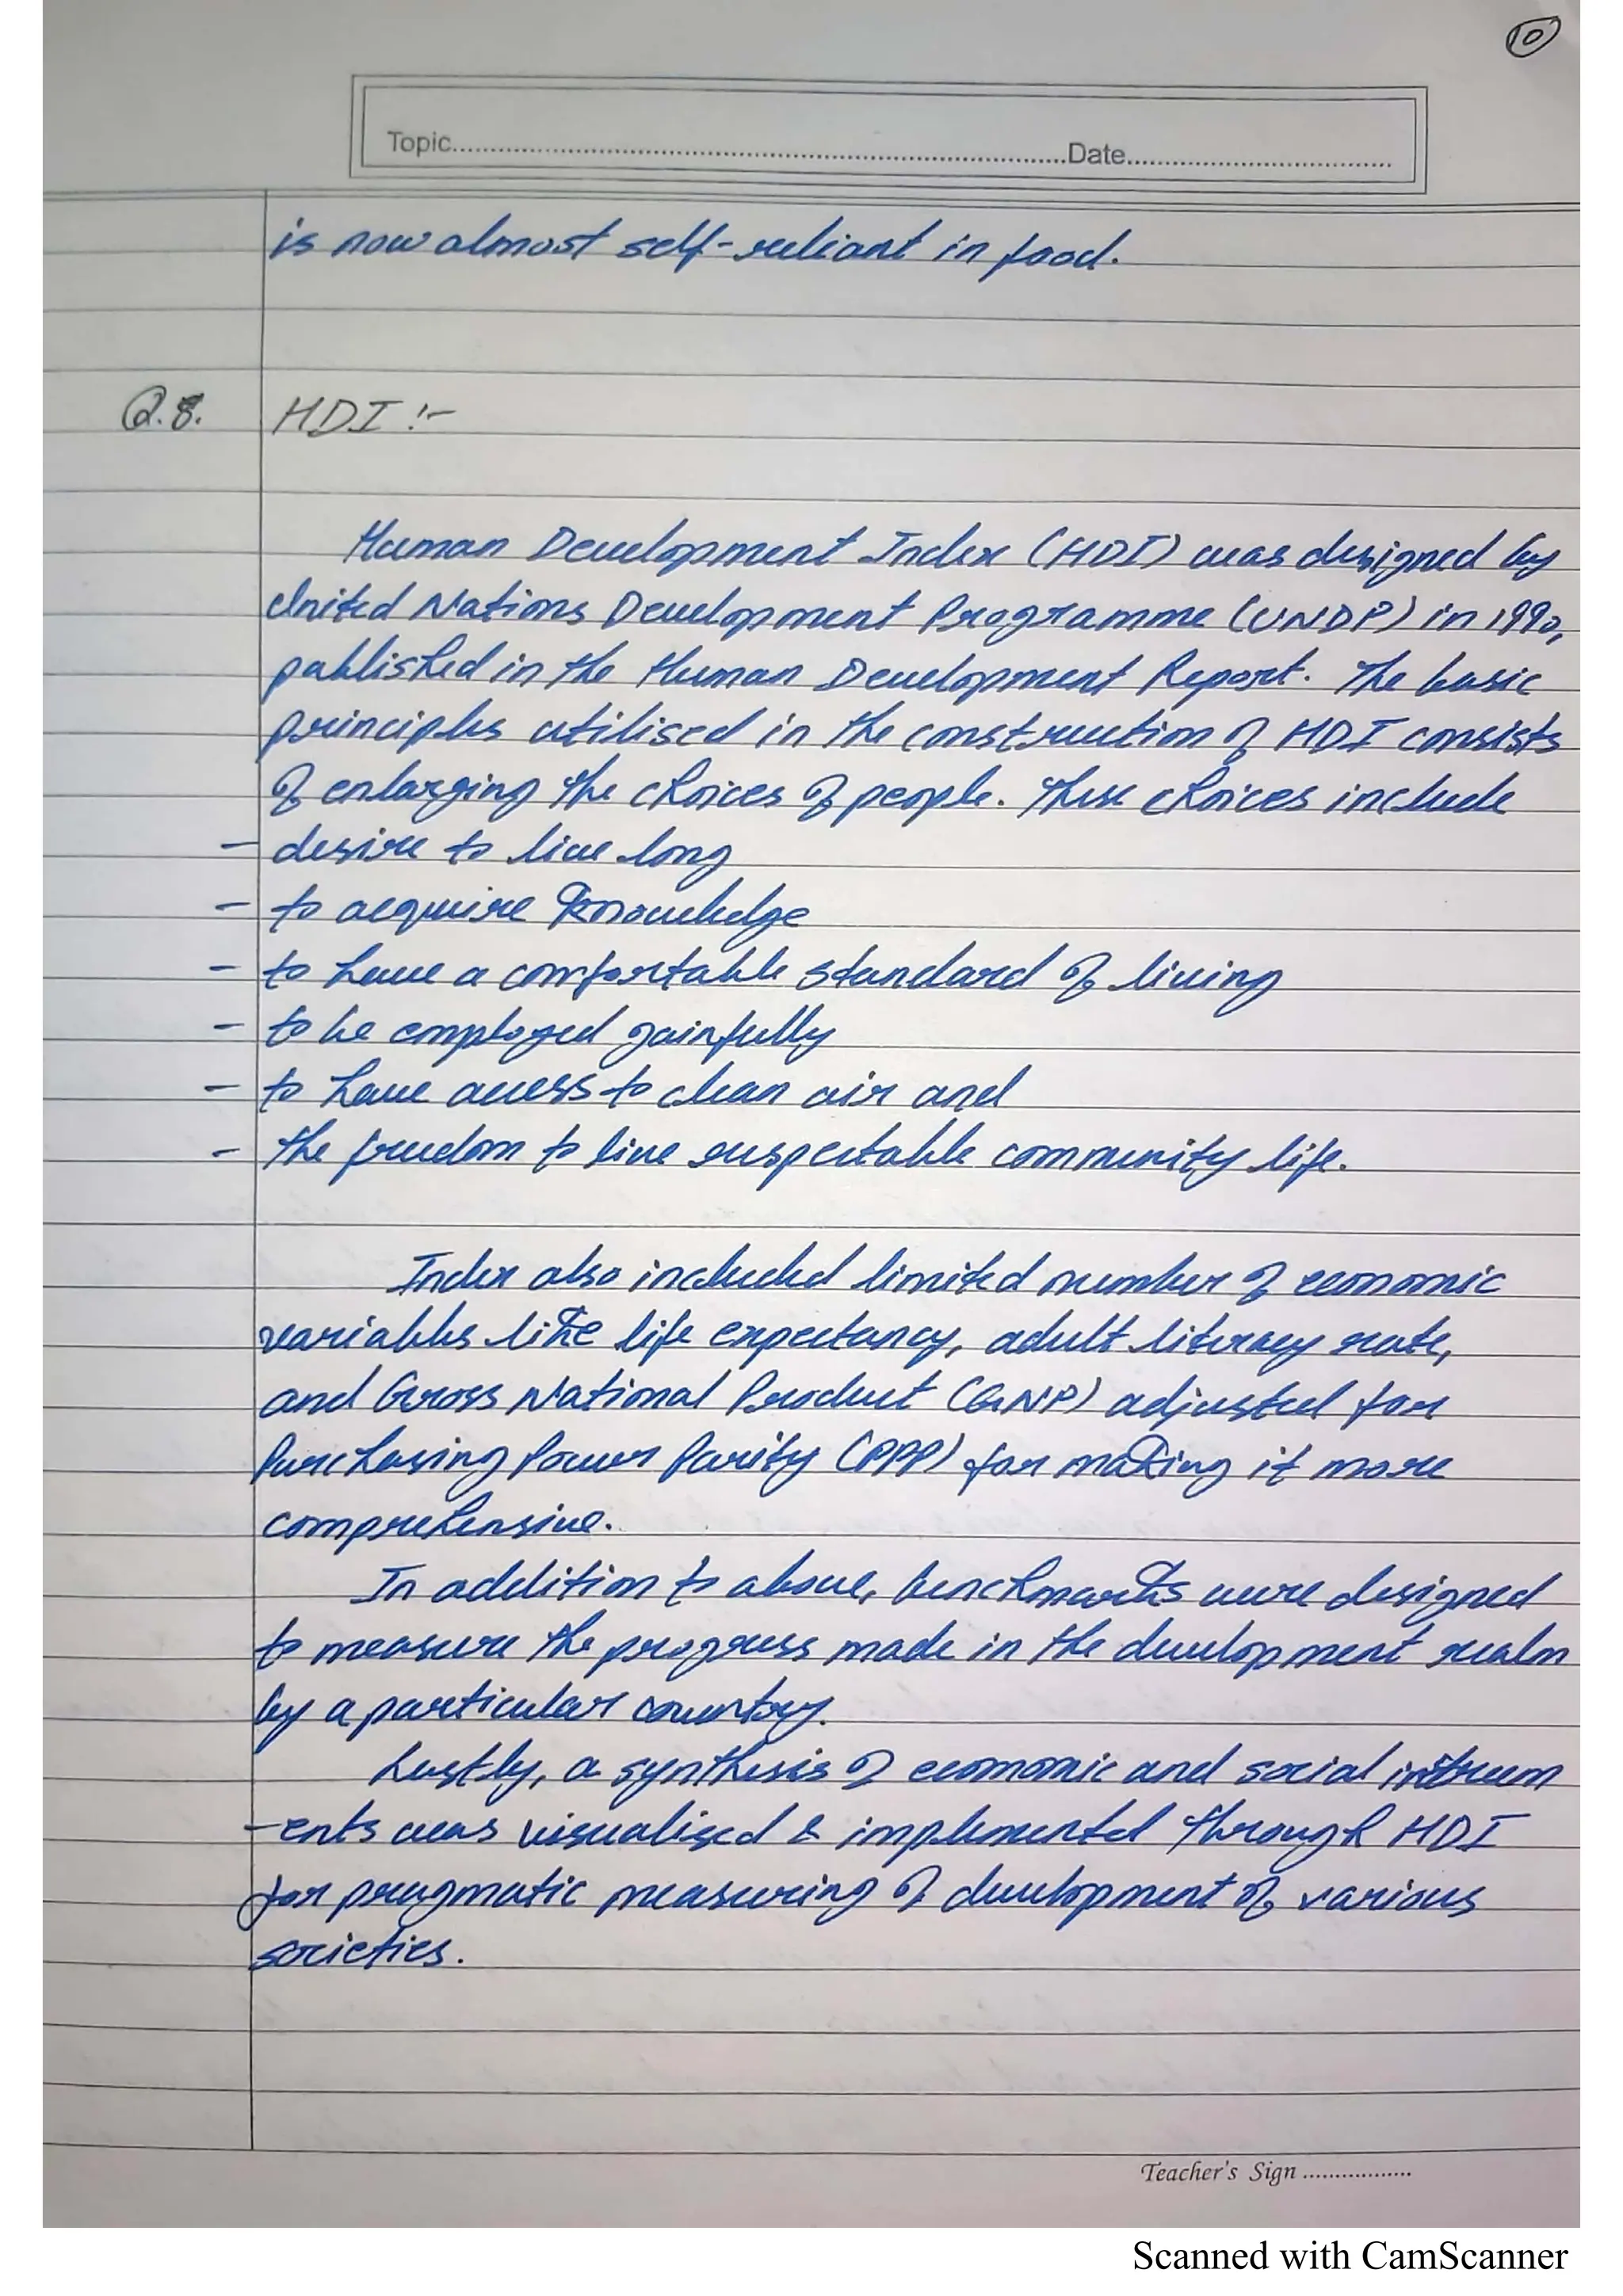 10
Topic.....................Date.....................
is now almost self-reliant in food.
Q.8. HDI :-
Human Development Index (HDI) was designed by
United Nations Development Programme (UNDP) in 1990,
published in the Human Development Report. The basic
principles utilised in the construction of HDI consists
of enlarging the choices of people. These choices include
- desire to live long
- to acquire knowledge
- to have a comfortable standard of living
- to be employed gainfully
- to have access to clean air and
- the freedom to live respectable community life.
Index also included limited number of economic
variables like life expectancy, adult literacy rate,
and Gross National Product (GNP) adjusted for
Purchasing Power Parity (PPP) for making it more
comprehensive.
In addition to above, benchmarks were designed
to measure the progress made in the development realm
by a particular country.
Lastly, a synthesis of economic and social instrum
-ents was visualised & implemented through HDI
for pragmatic measuring of development of various
societies.
Teacher's Sign ..................
Scanned with CamScanner